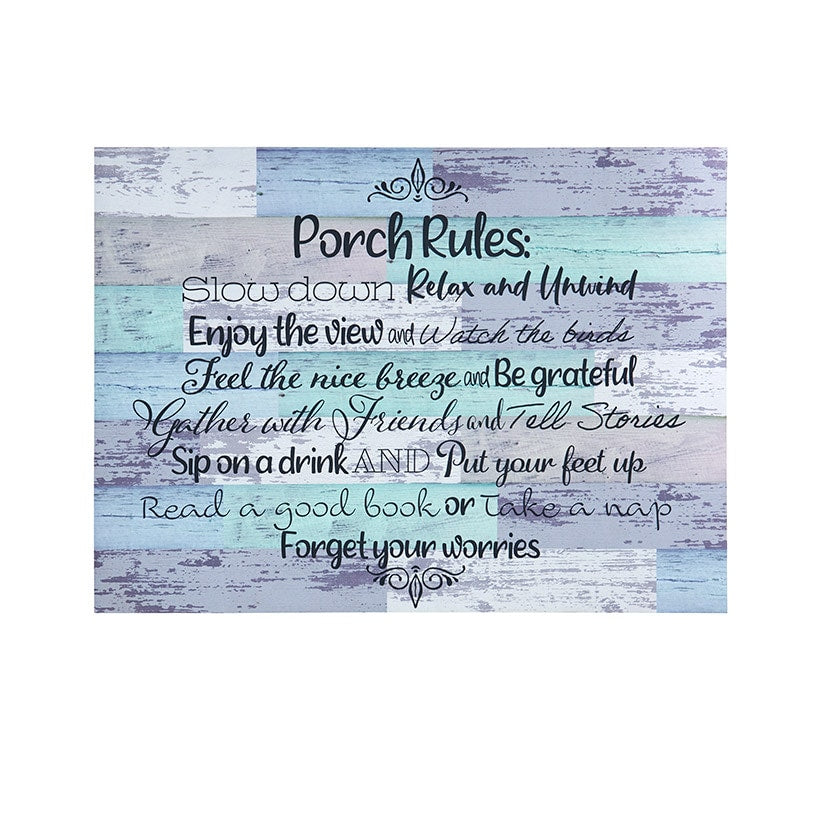 Porch Rules:
Slow down Relax and Unwind
Enjoy the view and Watch the birds
Feel the nice breeze and Be grateful
Gather with Friends and Tell Stories
Sip on a drink AND Put your feet up
Read a good book or Take a nap
Forget your worries